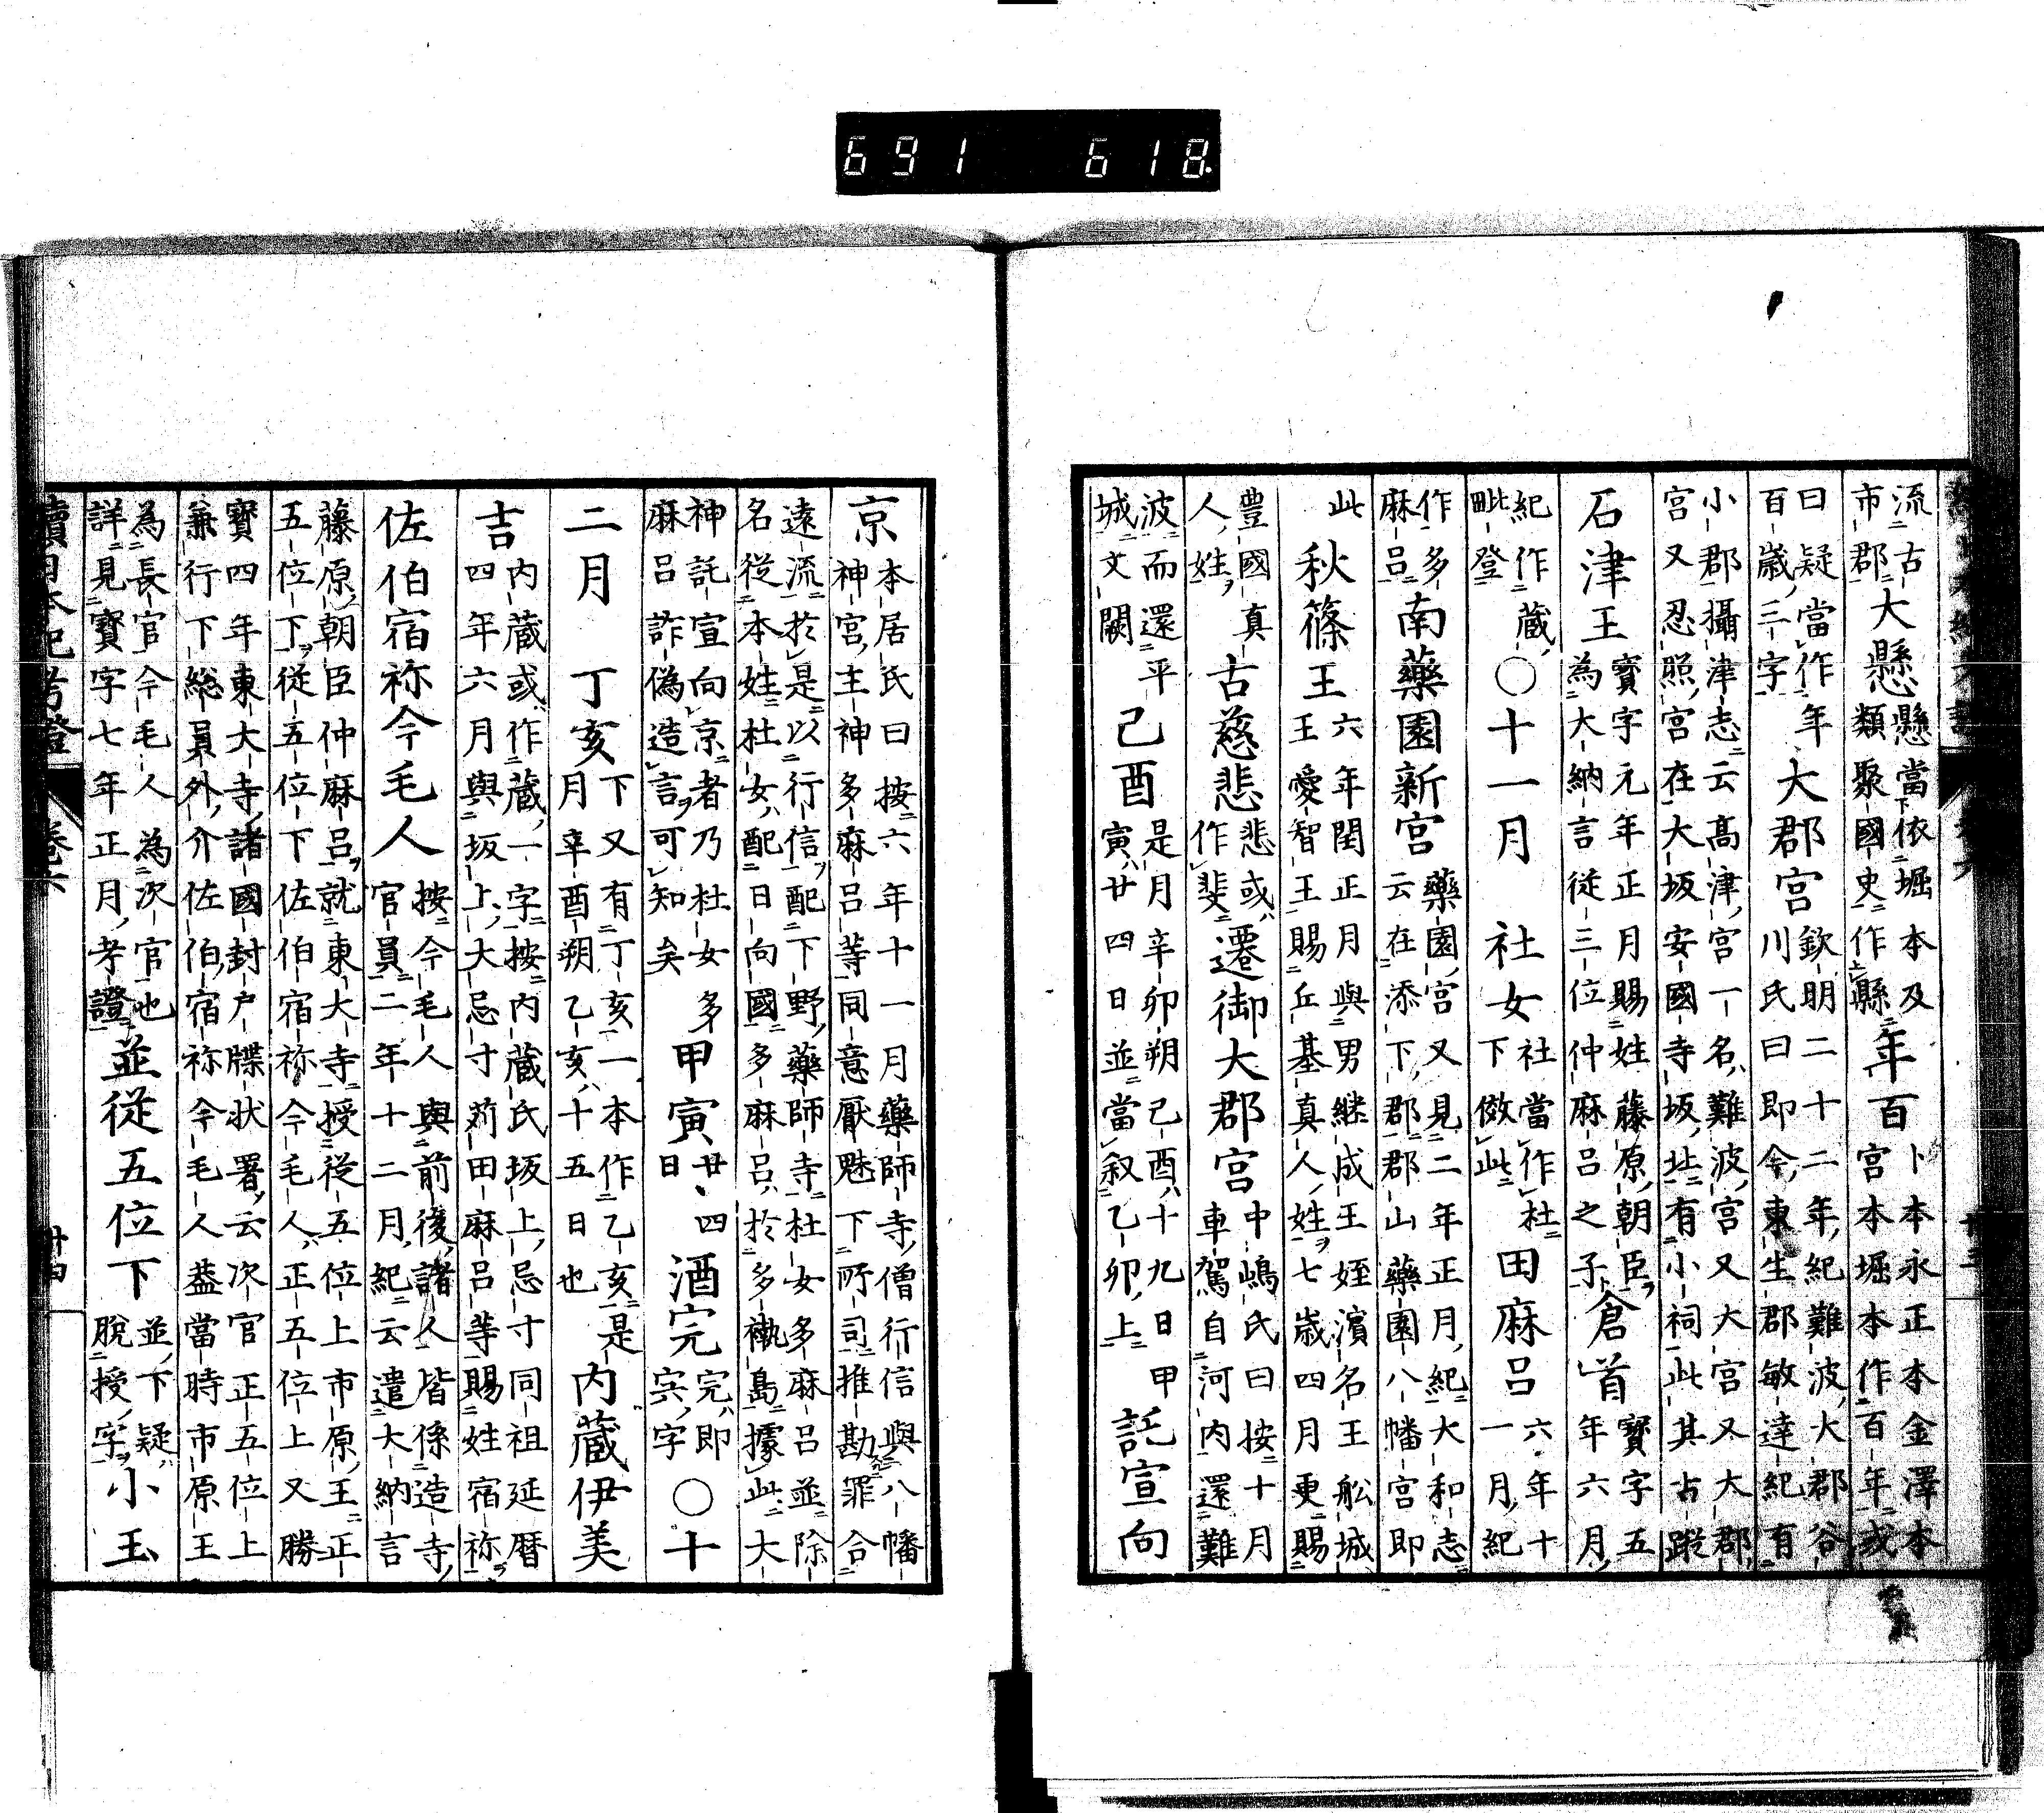 691 618
流古
市郡
大懸
懸當依堀本及
類聚國史作縣
年百
卜本永正本金澤本
宮本堀本作百年或
曰疑當作年
百歳三字
大郡宮
欽明二十二年紀難波大郡谷
川氏曰即今東生郡敏達紀有
小郡攝津志云髙津宮一名難波宮又大宮又大郡
宮又忍照宮在大坂安國寺坂北有小祠此其古蹤
石津王
寳字元年正月賜姓藤原朝臣
為大納言從三位仲麻呂之子
倉首
寳字五
年六月
紀作蔵
毗登
○十一月
社女
社當作杜
下傚此
田麻呂
六年十
一月紀
作多
麻呂
南藥園新宮
藥園宮又見二年正月紀大和志
云在添下郡郡山藥園八幡宮即
此
秋篠王
六年閏正月與男継成王姪濱名王舩城
王愛智王賜丘基真人姓七歳四月更賜
豊國真
人姓
古慈悲
悲或
作斐
遷御大郡宮
中嶋氏曰按十月
車駕自河内還難
波而還平
城文闕
己酉
是月辛卯朔己酉十九日甲
寅廿四日並當叙乙卯上
託宣向
京
本居氏曰按六年十一月藥師寺僧行信與八幡
神宮主神多麻呂等同意厭魅下所司推勘罪合
遠流於是以行信配下野藥師寺杜女多麻呂並除
名從本姓杜女配日向國多麻呂於多褹島據此大
神託宣向京者乃杜女多
麻呂詐偽造言可知矣
甲寅
廿四
日
酒完
完即
宍字
○十
二月
丁亥
下又有丁亥一本作乙亥是
月辛酉朔乙亥十五日也
内蔵伊美
吉
内蔵或作蔵一字按内蔵氏坂上忌寸同祖延暦
四年六月與坂上大忌寸苅田麻呂等賜姓宿祢
佐伯宿祢今毛人
按今毛人與前後諸人皆係造寺
官員二年十二月紀云遣大納言
藤原朝臣仲麻呂就東大寺授從五位上市原王正
五位下從五位下佐伯宿祢今毛人正五位上又勝
寳四年東大寺諸國封戸牒状署云次官正五位上
兼行下総員外介佐伯宿祢今毛人葢當時市原王
為長官今毛人為次官也
詳見寳字七年正月考證
並従五位下
並下疑
脱授字
小玉
續日本紀考證
卷六
廿四